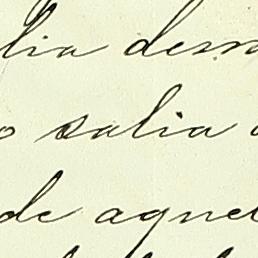 lia dem
o salia
de aque